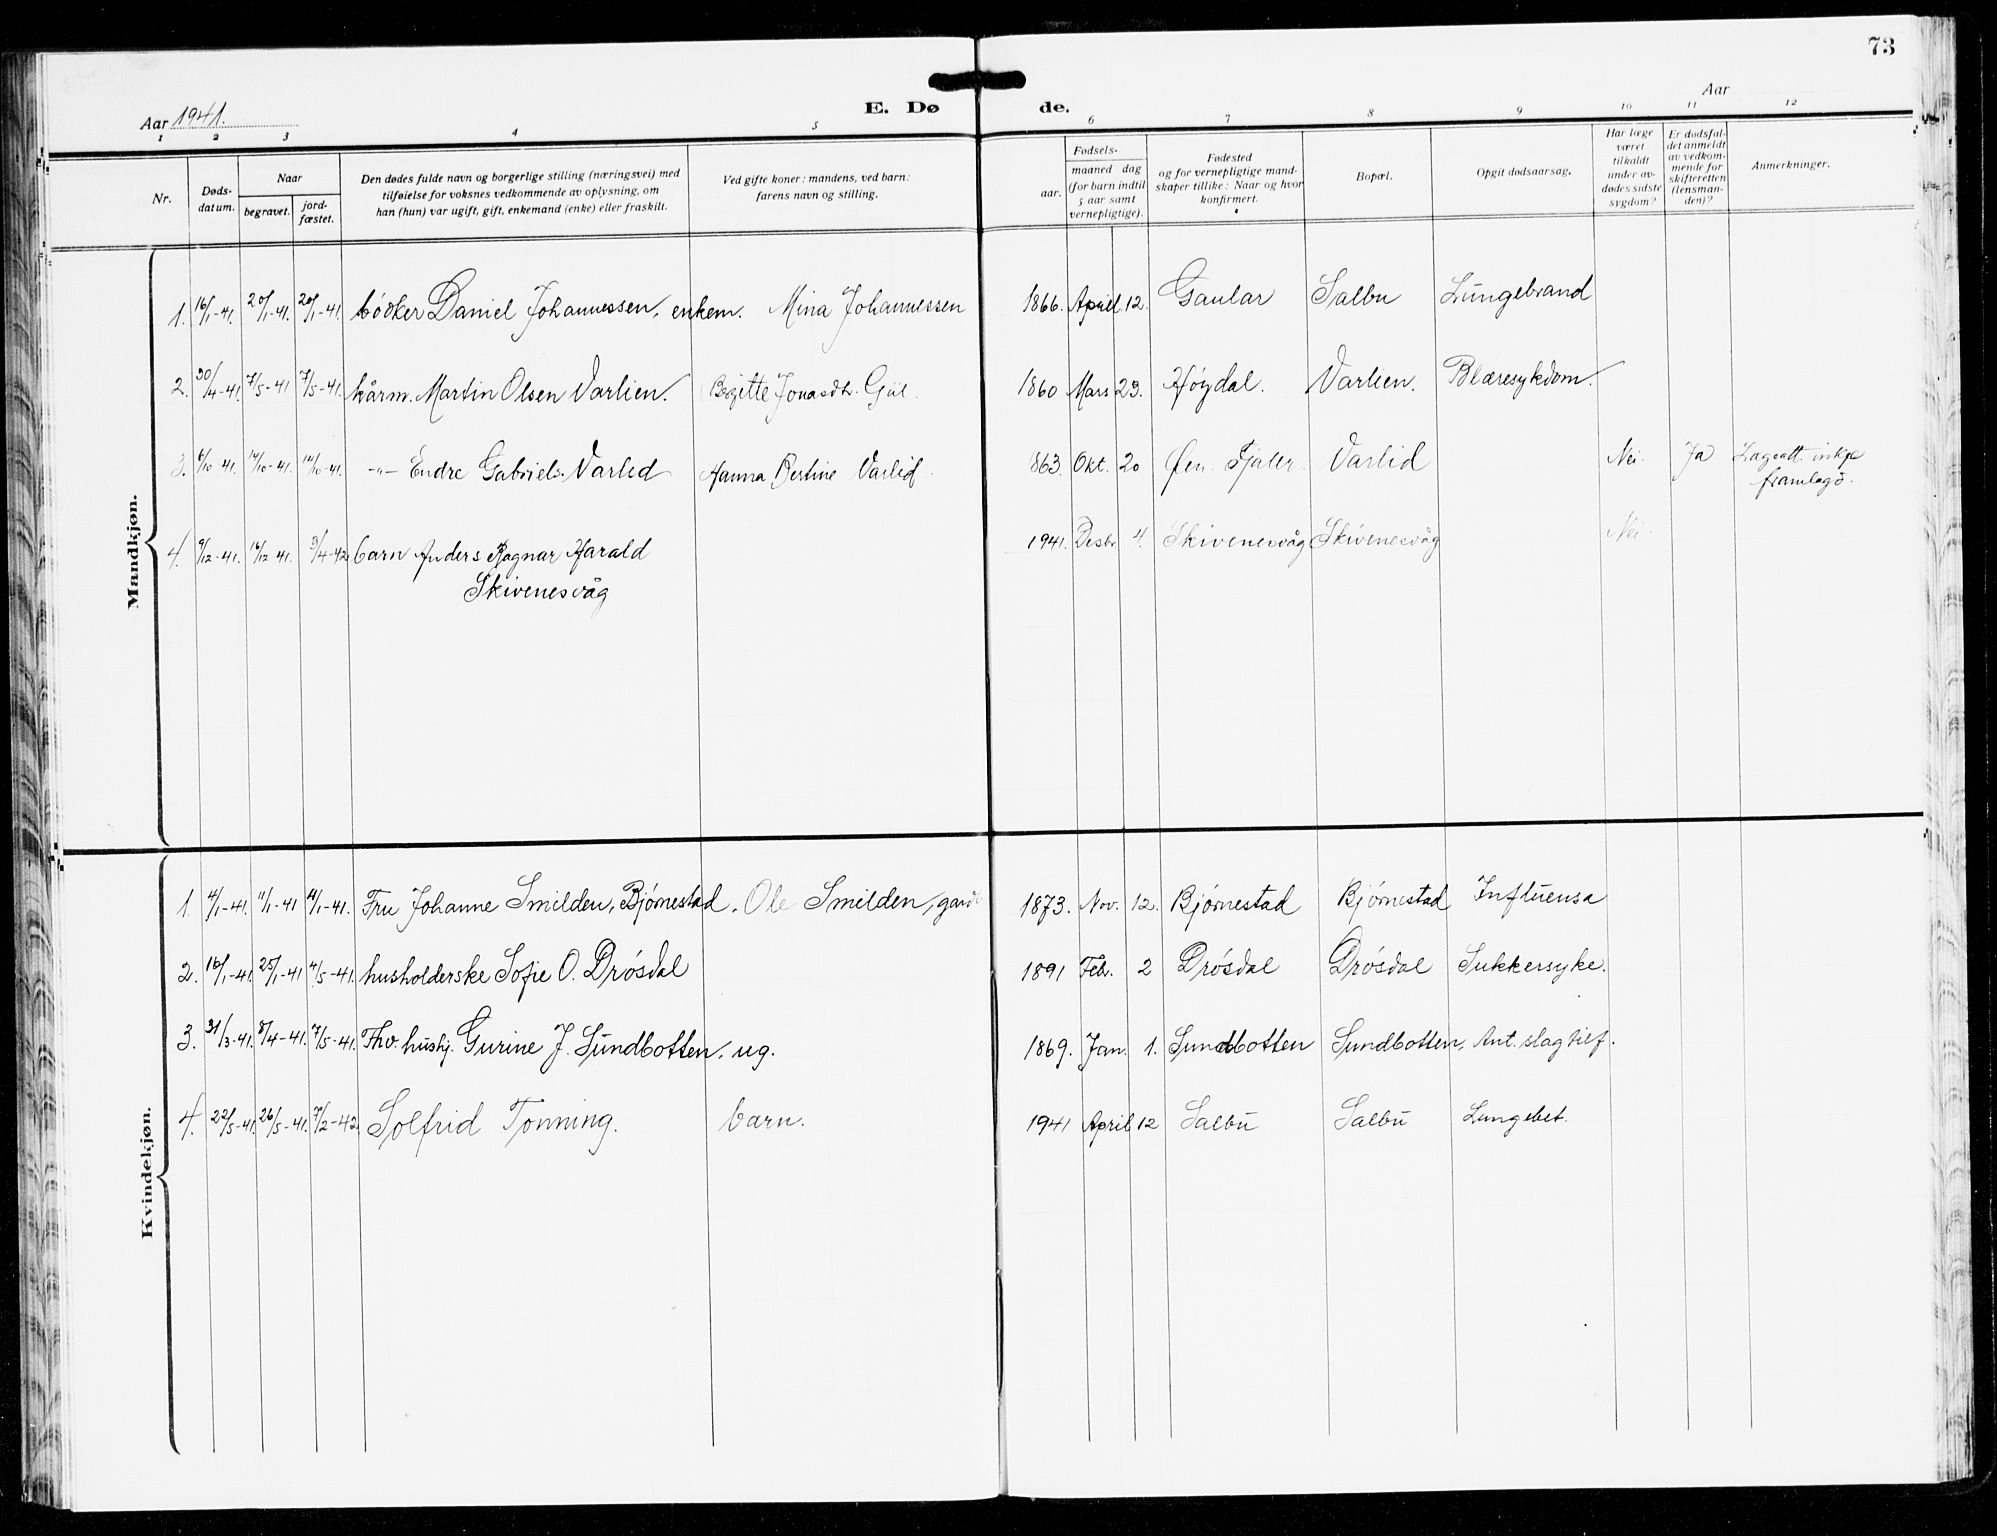 73
Aar 1941.
E. Døde.
Aar
1 2 3 4 5 6 7 8 9 10 11 12
Nr.
Døds-
datum.
Naar
begravet.
jord-
fæstet.
Den dødes fulde navn og borgerlige stilling (næringsvei) med
tilføielse for voksnes vedkommende av oplysning, om
han (hun) var ugift, gift, enkemand (enke) eller fraskilt.
Ved gifte koner: mandens, ved barn:
farens navn og stilling.
Fødsels-
aar.
maaned dag
(for barn indtil
5 aar samt
vernepligtige).
Fødested
og for vernepligtige mand-
skaper tillike: Naar og hvor
konfirmert.
Bopæl.
Opgit dødsaarsag.
Har læge
været
tilkaldt
under av-
dødes sidste
sygdom?
Er dødsfal-
det anmeldt
av vedkom-
mende for
skifteretten
(lensman-
den)?
Anmerkninger.
Mandkjøn.
1. 16/1-41. 20/1-41. 20/1-41. bødker Daniel Johannessen, enkem. Mina Johannessen 1866. April 12. Gaular Salbu Lungebrand
2. 30/4-41. 7/5-41 7/5-41. kårm. Martin Olsen Varlien. Birgitte Jonasdtr. Gil. 1860 Mars 23. Høydal. Varlien. Blæresykdom.
3. 6/10-41. 14/10-41. 14/10-41. -"- Endre Gabriels. Varlid Hanna Bertine Varlid. 863. Okt. 20 Øen. Fjaler. Varlid Nei. Ja Lægeatt. inkje
framlagd.
4. 9/12-41. 16/12-41. 3/4-42 barn Anders Ragnar Harald 1941. Desbr. 4. Skivenesvåg Skivenesvåg Nei.
Skivenesvåg
Kvindekjøn.
1. 4/1-41. 11/1-41 11/1-41. Fru Johanne Smilden, Bjørnestad. Ole Smilden, gardb 1873. Nov. 12. Bjørnestad Bjørnestad Influensa
2. 16/1-41. 25/1-41 4/5-41. husholderske Sofie O. Drøsdal 1891 Feb. 2 Drøsdal Drøsdal Sukkersyke.
3. 31/3-41. 8/4-41. 7/5-41. Fhv. hushj. Gurine J. Sundbotten, ug. 1869. Jan. 1. Sundbotten Sundbotten, Ant. slagtilf.
4. 22/5-41. 26/5-41. 7/2-42 Solfrid Tonning. barn. 1941 April 12 Salbu Salbu Lungebet.